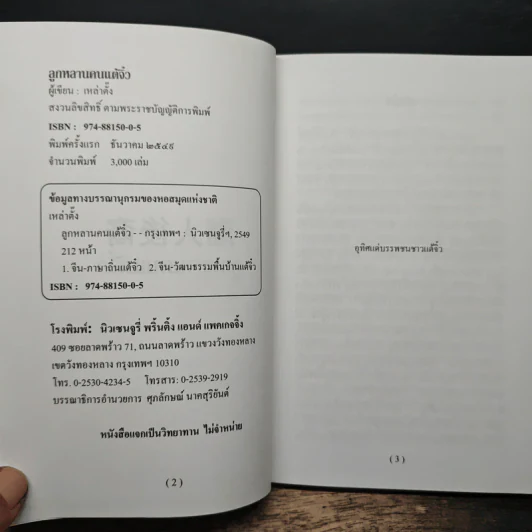 ลูกหลานคนแต้จิ๋ว
ผู้เขียน : เหล่าตั้ง
สงวนลิขสิทธิ์ ตามพระราชบัญญัติการพิมพ์
ISBN : 974-88150-0-5
พิมพ์ครั้งแรก ธันวาคม ๒๕๔๙
จำนวนพิมพ์ 3,000 เล่ม
ข้อมูลทางบรรณานุกรมของหอสมุดแห่งชาติ
เหล่าตั้ง
ลูกหลานคนแต้จิ๋ว - - กรุงเทพฯ : นิวเซนจูรี่ฯ, 2549
212 หน้า
1. จีน-ภาษาถิ่นแต้จิ๋ว 2. จีน-วัฒนธรรมพื้นบ้านแต้จิ๋ว
ISBN : 974-88150-0-5
โรงพิมพ์: นิวเซนจูรี่ พริ้นติ้ง แอนด์ แพคเกจจิ้ง
409 ซอยลาดพร้าว 71, ถนนลาดพร้าว แขวงวังทองหลาง
เขตวังทองหลาง กรุงเทพฯ 10310
โทร. 0-2530-4234-5 โทรสาร: 0-2539-2919
บรรณาธิการอำนวยการ ศุภลักษณ์ นาคสุริยันต์
หนังสือแจกเป็นวิทยาทาน ไม่จำหน่าย
( 2 )
อุทิศแด่บรรพชนชาวแต้จิ๋ว
( 3 )